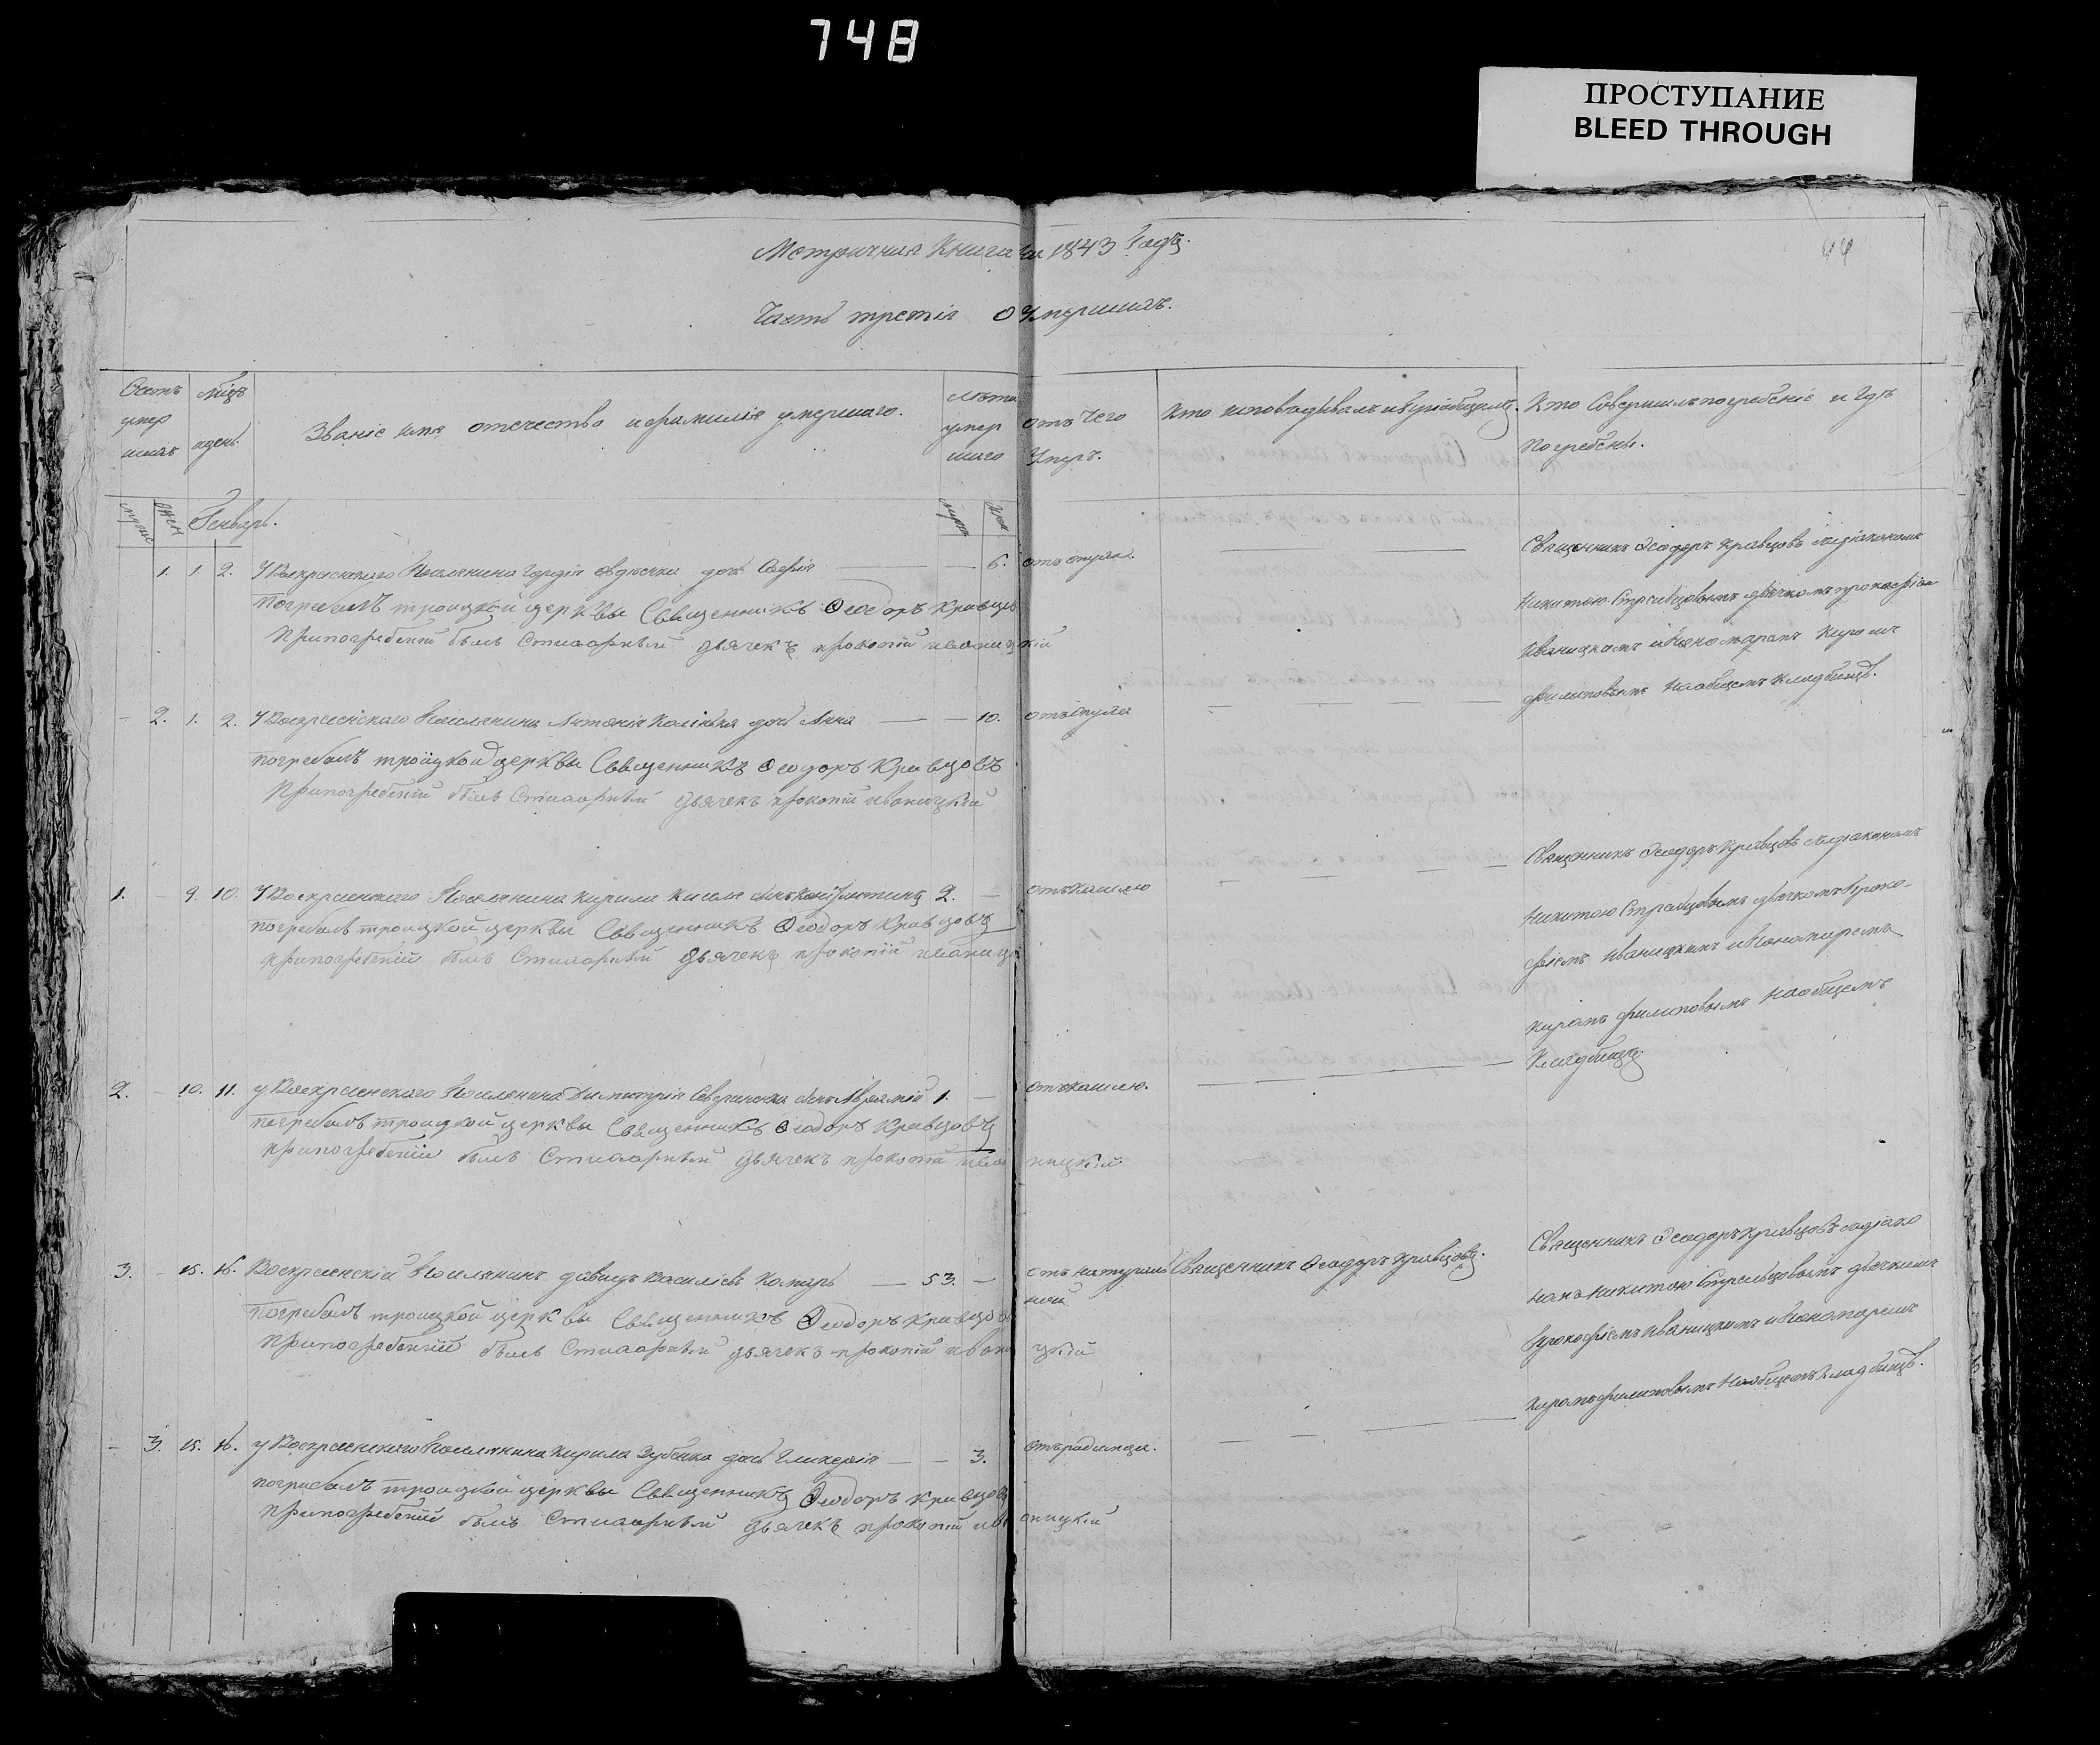 748
ПРОСТУПАНИЕ
BLEED THROUGH
44
Метричная Книга на 1843 Годъ.
Часть третія О Умершихъ.
Счетъ умер шихъ
Мѣсц и день
Званіе имя отечество и фамилія умершаго.
Лѣта умер шаго
Отъ Чего Умеръ.
Кто исповѣдывалъ и пріобщалъ.
Кто Совершилъ погребеніе и Гдѣ Погребены.
Генварь.
1. 1. 2. У Воскресенского Поселянина Гордія дочь Софія — 6. отъ
погребалъ троицкой церквы Священникъ Феодоръ Кравцов
Припогребеніи былъ Стихарный дьячекъ прокопій иваницкій
Священникъ Феодоръ Кравцовъ
Никитою Стрельцовымъ дьячкомъ прокофіем
Иваницкимъ и Пономаремъ Киром
филиповымъ на общемъ кладбищѣ.
- 2. 1. 2. У Воскресенского Поселянина Антонія дочь Анна — — 10. отъ
погребалъ троицкой церквы Священникъ Феодоръ Кравцовъ
Припогребеніи былъ Стихарный дьячекъ прокопій иваницкій
1. - 9. 10. У Воскресенского Поселянина Кирила Кисля сынъ 2. — отъ кашлю
погребалъ троицкой церквы Священникъ Феодоръ Кравцовъ
припогребеніи былъ Стихарный дьячекъ прокопій иваниц
Священникъ Феодоръ Кравцовъ
Никитою Стрельцовымъ дьячкомъ Проко-
фіемъ Иваницкимъ и Пономаремъ
Киромъ филиповымъ на общемъ
Кладбищѣ.
2. - 10. 11. У Воскресенского Поселянина Димитрія сынъ 1. — отъ кашлю.
погребалъ троицкой церквы Священникъ Феодоръ Кравцовъ
припогребеніи былъ Стихарный дьячекъ прокопій иваницкій
3. - 15. 16. Воскресенскій Поселянинъ Давидъ Василіевъ Комарь — 53. — отъ натураль ной Священникъ Феодоръ Кравцовъ.
погребалъ троицкой церквы Священникъ Феодоръ Кравцов
Припогребеніи былъ Стихарный дьячекъ прокопій иваницкій
Священникъ Феодоръ Кравцовъ содіако
номъ Никитою Стрельцовымъ дьячкомъ
Прокофіемъ Иваницкимъ и Пономаремъ
Киромъ филиповымъ на общемъ кладбищѣ.
- 3. 15. 16. У Воскресенского Поселянина Кирила Зубенка дочь Гликерія — — 3. отъ родимца.
погребалъ троицкой церквы Священникъ Феодоръ Кравцов
Припогребеніи былъ Стихарный дьячекъ прокопій иваницкій